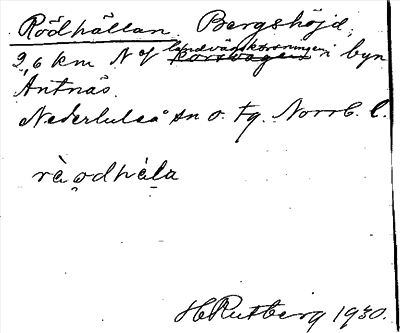 Rödhällan. Bergshöjd,
2,6 km N of landsvägskorsningen i byn
Antnäs.
Nederluleå sn o. tg. Norrb. l.
rà̀ọdhála
H Rutberg 1930.